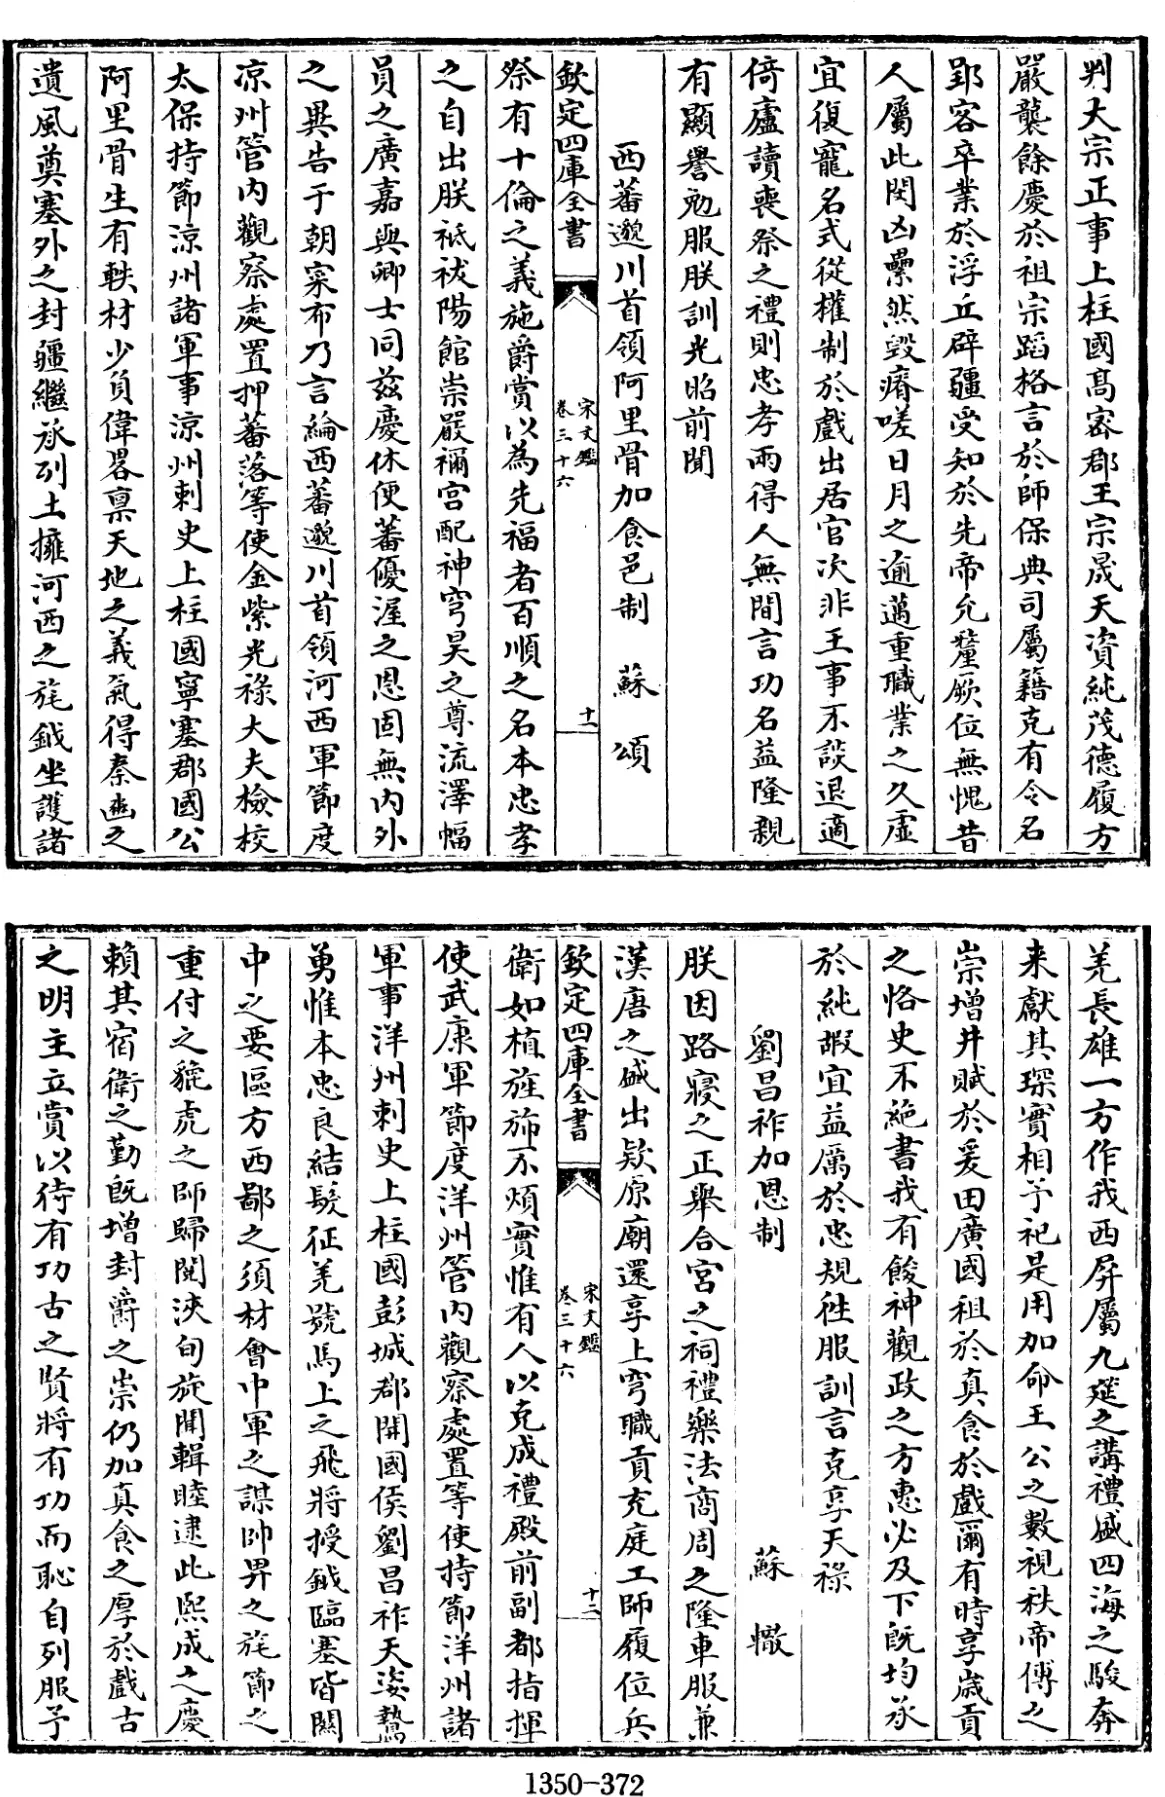 判大宗正事上柱國髙密郡王宗晟天資純茂德履方
嚴襲餘慶於祖宗蹈格言於師保典司屬籍克有令名
郢客卒業於浮丘辟疆受知於先帝允釐厥位無愧昔
人屬此閔凶纍然毁瘠嗟日月之逾邁重職業之久虛
宜復寵名式從權制於戲出居官次非王事不談退適
倚廬讀喪祭之禮則忠孝兩得人無間言功名益隆親
有顯譽勉服朕訓光昭前聞
西蕃邈川首領阿里骨加食邑制 蘇頌
欽定四庫全書 宋文鑑 卷三十六 十一
祭有十倫之義施爵賞以為先福者百順之名本忠孝
之自出朕祗祓陽館崇嚴禰宫配神穹昊之尊流澤幅
員之廣嘉與卿士同兹慶休便蕃優渥之恩固無内外
之異告于朝寀布乃言綸西蕃邈川首領河西軍節度
凉州管内觀察處置押蕃落等使金紫光祿大夫檢校
太保持節涼州諸軍事涼州刺史上柱國寧塞郡國公
阿里骨生有軼材少負偉畧禀天地之義氣得秦豳之
遺風奠塞外之封疆繼承列土擁河西之旄鉞坐護諸
羌長雄一方作我西屏屬九筵之講禮盛四海之駿奔
来獻其琛實相予祀是用加命王公之數視秩帝傅之
崇增井賦於爰田廣國租於真食於戲爾有時享歲貢
之恪史不絶書我有餕神觀政之方惠必及下既均承
於純嘏宜益厲於忠規徃服訓言克享天祿
劉昌祚加恩制 蘇轍
朕因路寢之正舉合宮之祠禮樂法商周之隆車服兼
漢唐之盛出欵原廟還享上穹職貢充庭工師履位兵
欽定四庫全書 宋文鑑 卷三十六 十二
衛如植旌斾不煩實惟有人以克成禮殿前副都指揮
使武康軍節度洋州管内觀察處置等使持節洋州諸
軍事洋州刺史上柱國彭城郡開國侯劉昌祚天姿鷙
勇惟本忠良結髮征羌號馬上之飛將授鉞臨塞皆關
中之要區方西鄙之須材㑹中軍之謀帥畀之旄節之
重付之貔虎之師歸閲浹旬旋聞輯睦逮此熙成之慶
賴其宿衛之勤既增封爵之崇仍加真食之厚於戲古
之明主立賞以待有功古之賢將有功而恥自列服予
1350-372